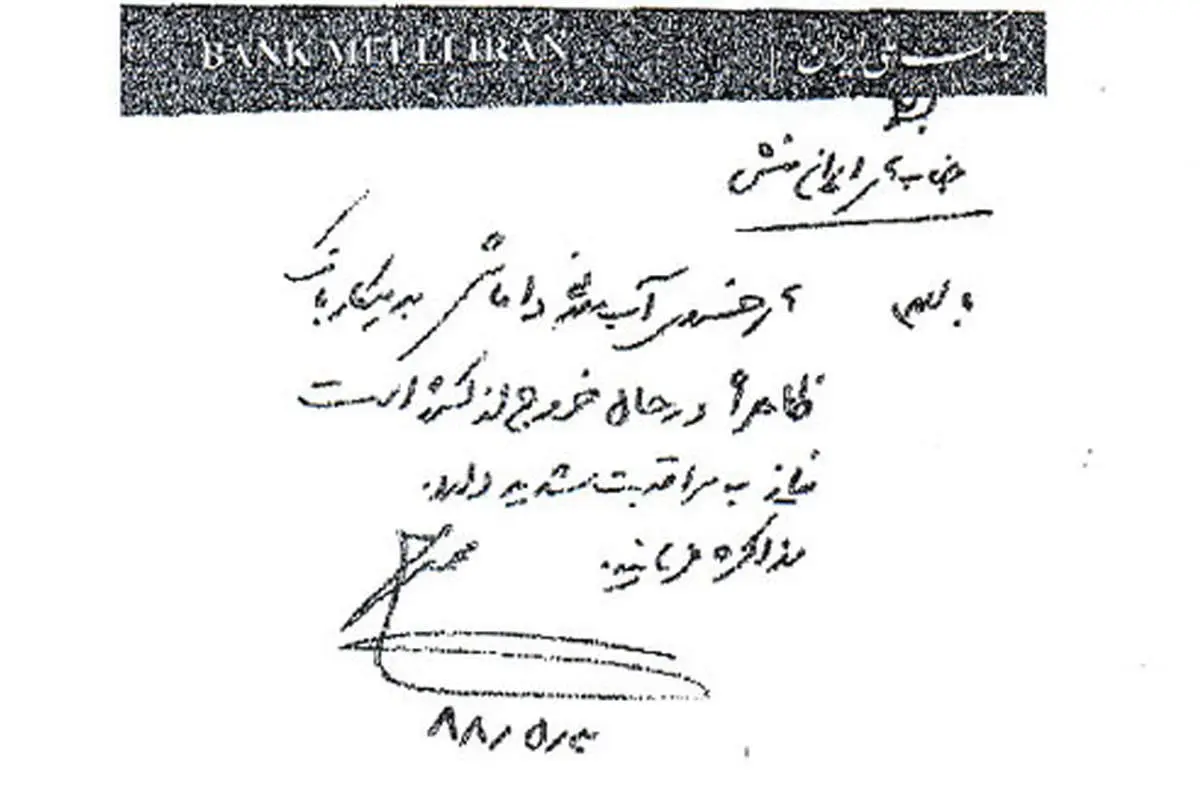 BANK MELLI IRAN بانک ملی ایران
جناب آقای ایرانمنش
با سلام آقای خسروی آب معدنی داماش بدهکار بانک
ظاهراً در حال خروج از کشور است
نیاز به مراقبت شدید دارد.
مذاکره فرمائید.
۸۸/۵/۳